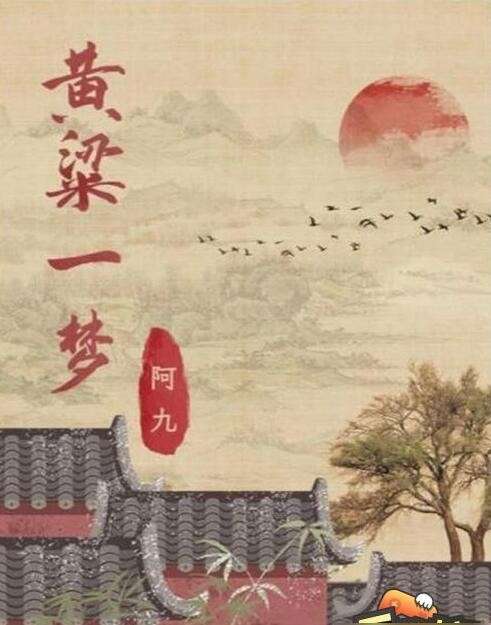 黄粱一梦
阿九